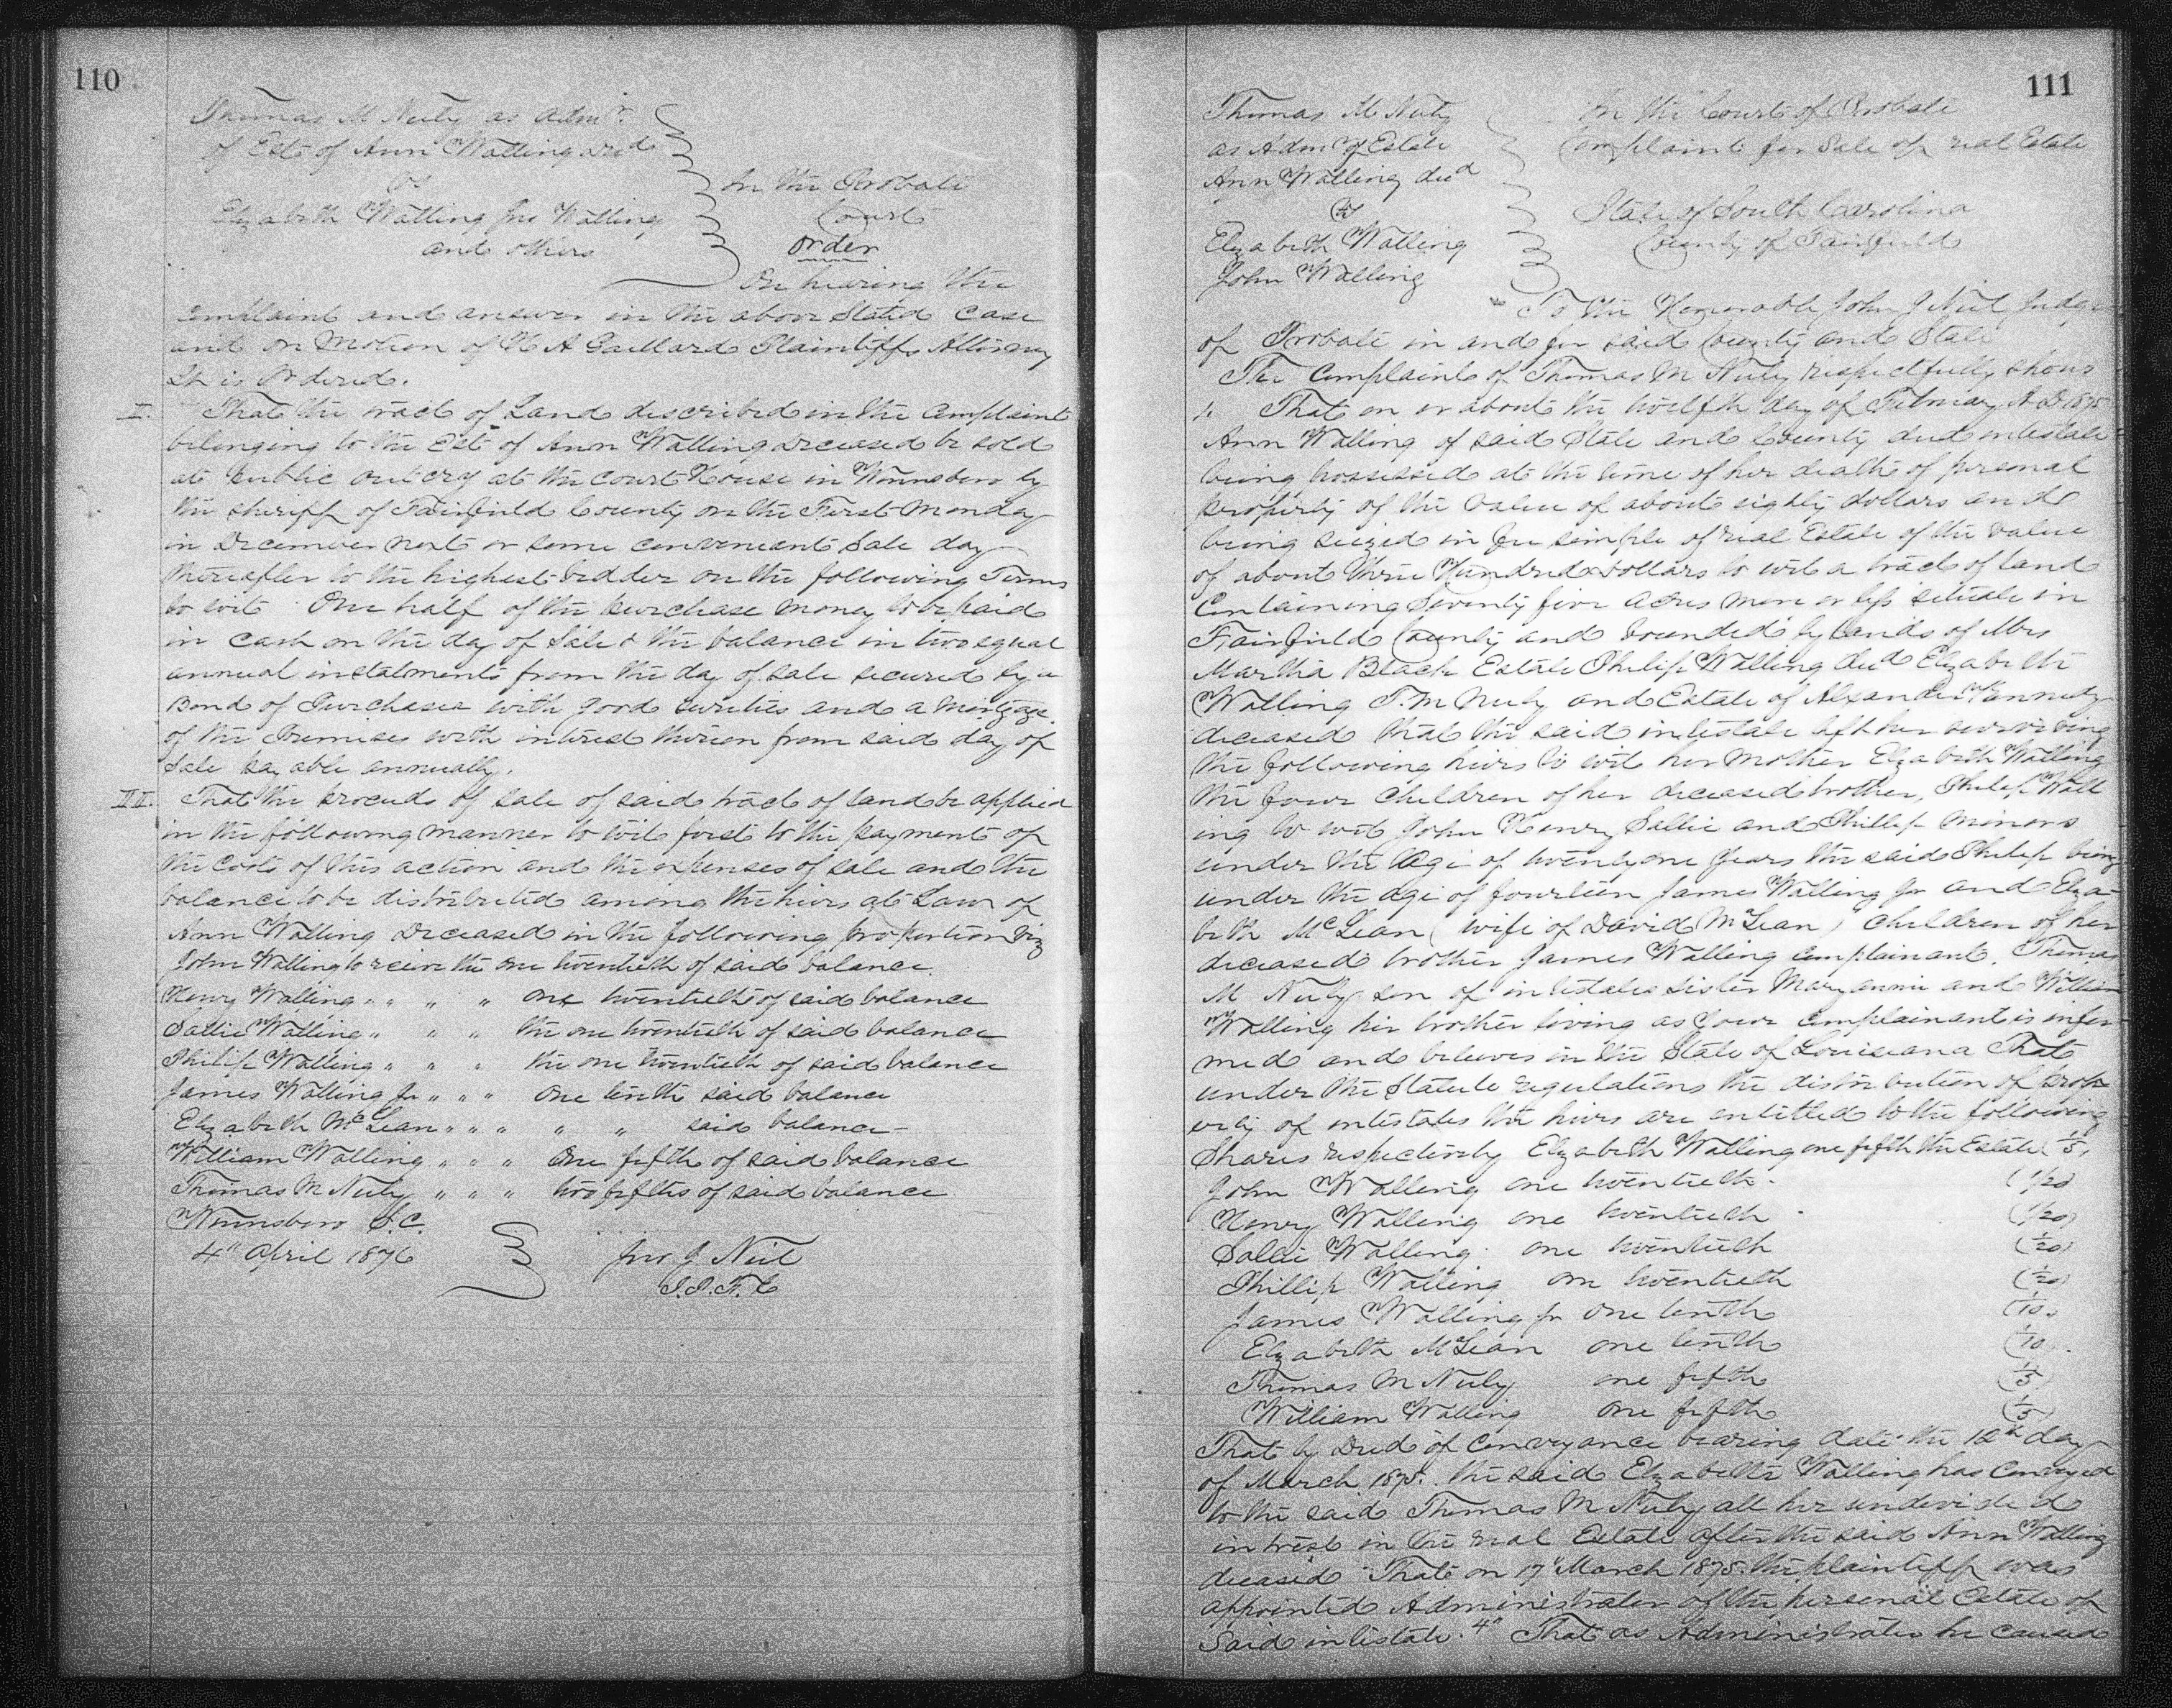 110
Thomas M Nuly as Adm^r.
of Est of Ann Walling decd
vs
Elizabeth Walling Jno Walling
and others
In the Probate
Court
Order
On hearing the
complaint and answer in the above Stated Case
and on Motion of H A Gaillard Plaintiffs Attorney
It is Ordered.
I. That the tract of Land described in the Complaint
belonging to the Est of Ann Walling deceased be sold
at Public outcry at the Court House in Winnsboro by
the sheriff of Fairfield County on the First Monday
in December next or some convenient Sale day
thereafter to the highest bidder on the following Terms
to wit One half of the purchase money to be paid
in cash on the day of Sale & the balance in two equal
annual instalments from the day of sale secured by a
Bond of Purchaser with good sureties and a Mortgage
of the Premises with interest thereon from said day of
Sale payable annually.
II. That the proceeds of sale of said tract of land be applied
in the following manner to wit first to the payment of
the costs of this action and the expenses of sale and the
balance to be distributed among the heirs at Law of
Ann Walling Deceased in the following proportion viz
John Walling to receive the one twentieth of said balance.
Henry Walling " " " " one twentieth of said balance
Sallie Walling " " " the one twentieth of said balance
Philip Walling " " " the one twentieth of said balance
James Walling Jr " " " One tenth said balance
Elizabeth McLean " " " " " said balance
William Walling " " " One fifth of said balance
Thomas M Nuly " " " two fifths of said balance
Winnsboro S.C.
4" April 1876
Jno J Neil
J.P.F.C
111
Thomas M Nuly
as Adm^r of Estate
Ann Walling decd
vs
Elizabeth Walling
John Walling
In the Court of Probate
Complaint for Sale of real Estate
State of South Carolina
County of Fairfield
To the Honorable John J Neil Judge
of Probate in and for said County and State
The Complaint of Thomas M Nuly respectfully shows
1. That on or about the twelfth day of February A.D. 1875
Ann Walling of said State and County died intestate
being possessed at the time of her death of personal
property of the value of about eighty dollars and
being seized in fee simple of real Estate of the value
of about Three Hundred dollars to wit a tract of land
Containing Seventy five acres more or less situate in
Fairfield County and bounded by lands of Mrs
Martha Black Estate Philip Walling decd Elizabeth
Walling T. M Nuly and Estate of Alexander Kannedy
deceased that the said intestate left her surviving
the following heirs to wit her Mother Elizabeth Walling
the four children of her deceased brother, Philip Wall
ing to wit John Henry Sallie and Phillip minors
under the age of twenty one years the said Philip being
under the age of fourteen James Walling Jr and Eliza-
beth McLean (wife of David McLean) children of her
deceased brother James Walling Complainant. Thomas
M Nuly son of intestates Sister Maryannie and William
Walling her brother living as your Complainant is infor
med and believes in the State of Louisiana That
under the Statute regulations the distribution of prop
erty of intestates the heirs are entitled to the following
Shares respectively Elizabeth Walling one fifth the Estate (1/5)
John Walling one twentieth. (1/20)
Henry Walling one twentieth (1/20)
Sallie Walling one twentieth (1/20)
Phillip Walling one twentieth (1/20)
James Walling Jr one tenth (1/10)
Elizabeth McLean one tenth (1/10)
Thomas M Nuly one fifth (1/5)
William Walling One fifth (1/5)
That by Deed of Conveyance bearing date the 12th day
of March 1875. the said Elizabeth Walling has conveyed
to the said Thomas M Nuly all her undivided
intrest in the real Estate after the said Ann Walling
deceased That on 17" March 1875. the plaintiff was
appointed Administrator of the personal Estate of
Said intestate. 4" That as Administrator he caused